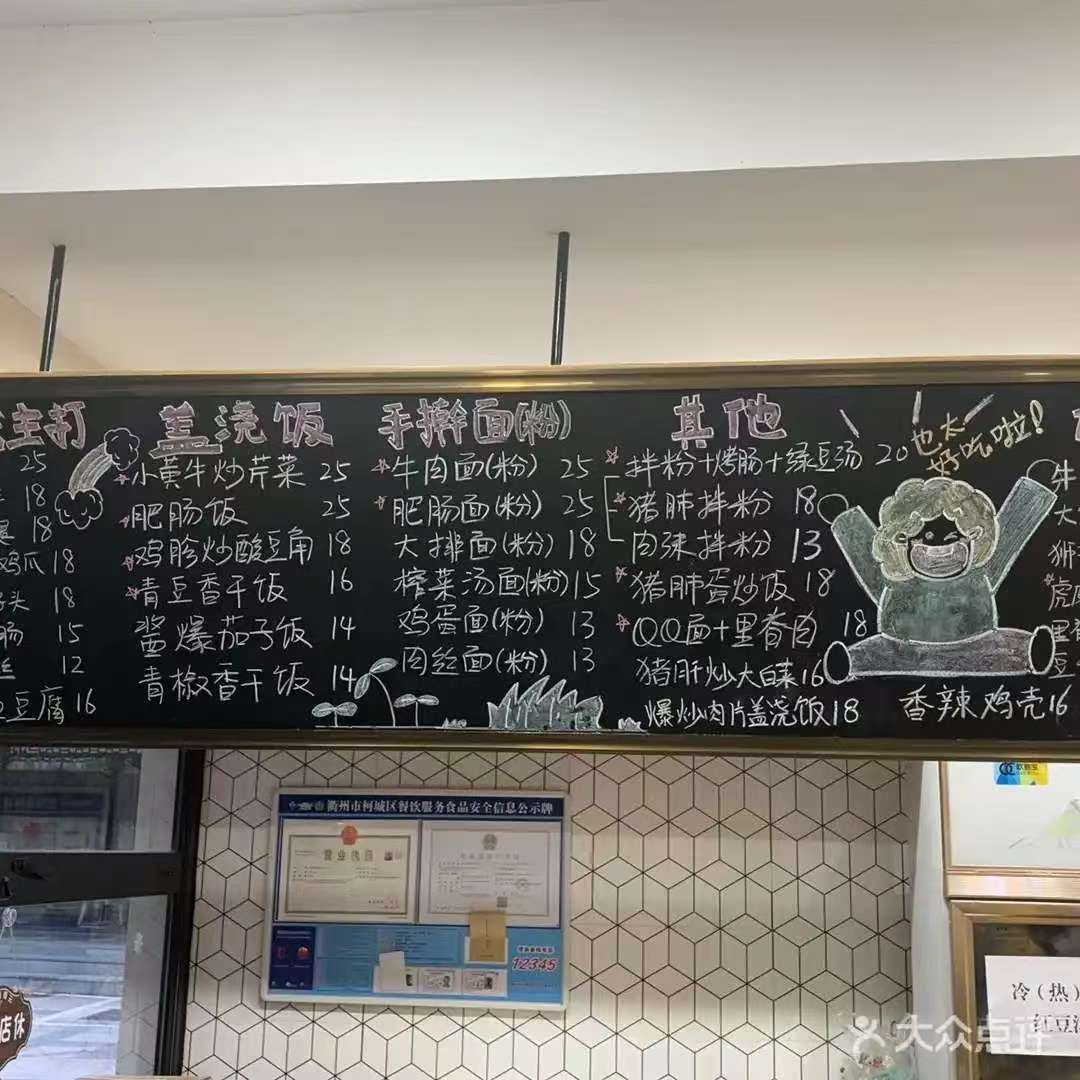 主打
25
18
18
鸡瓜 18
头 18
肠 15
丝 12
豆腐 16
盖浇饭
小黄牛炒芹菜 25
肥肠饭 25
鸡胗炒酸豆角 18
青豆香干饭 16
酱爆茄子饭 14
青椒香干饭 14
手擀面(粉)
牛肉面(粉) 25
肥肠面(粉) 25
大排面(粉) 18
榨菜汤面(粉) 15
鸡蛋面(粉) 13
肉丝面(粉) 13
其他
拌粉+烤肠+绿豆汤 20
猪肺拌粉 18
肉沫拌粉 13
猪肺蛋炒饭 18
QQ面+里脊肉 18
猪肝炒大白菜 16
爆炒肉片盖浇饭 18
也太
好吃啦!
香辣鸡壳 16
牛
大
狮
虎
豆
衢州市柯城区餐饮服务食品安全信息公示牌
营业执照
12345
店休
冷(热)
红豆
大众点评